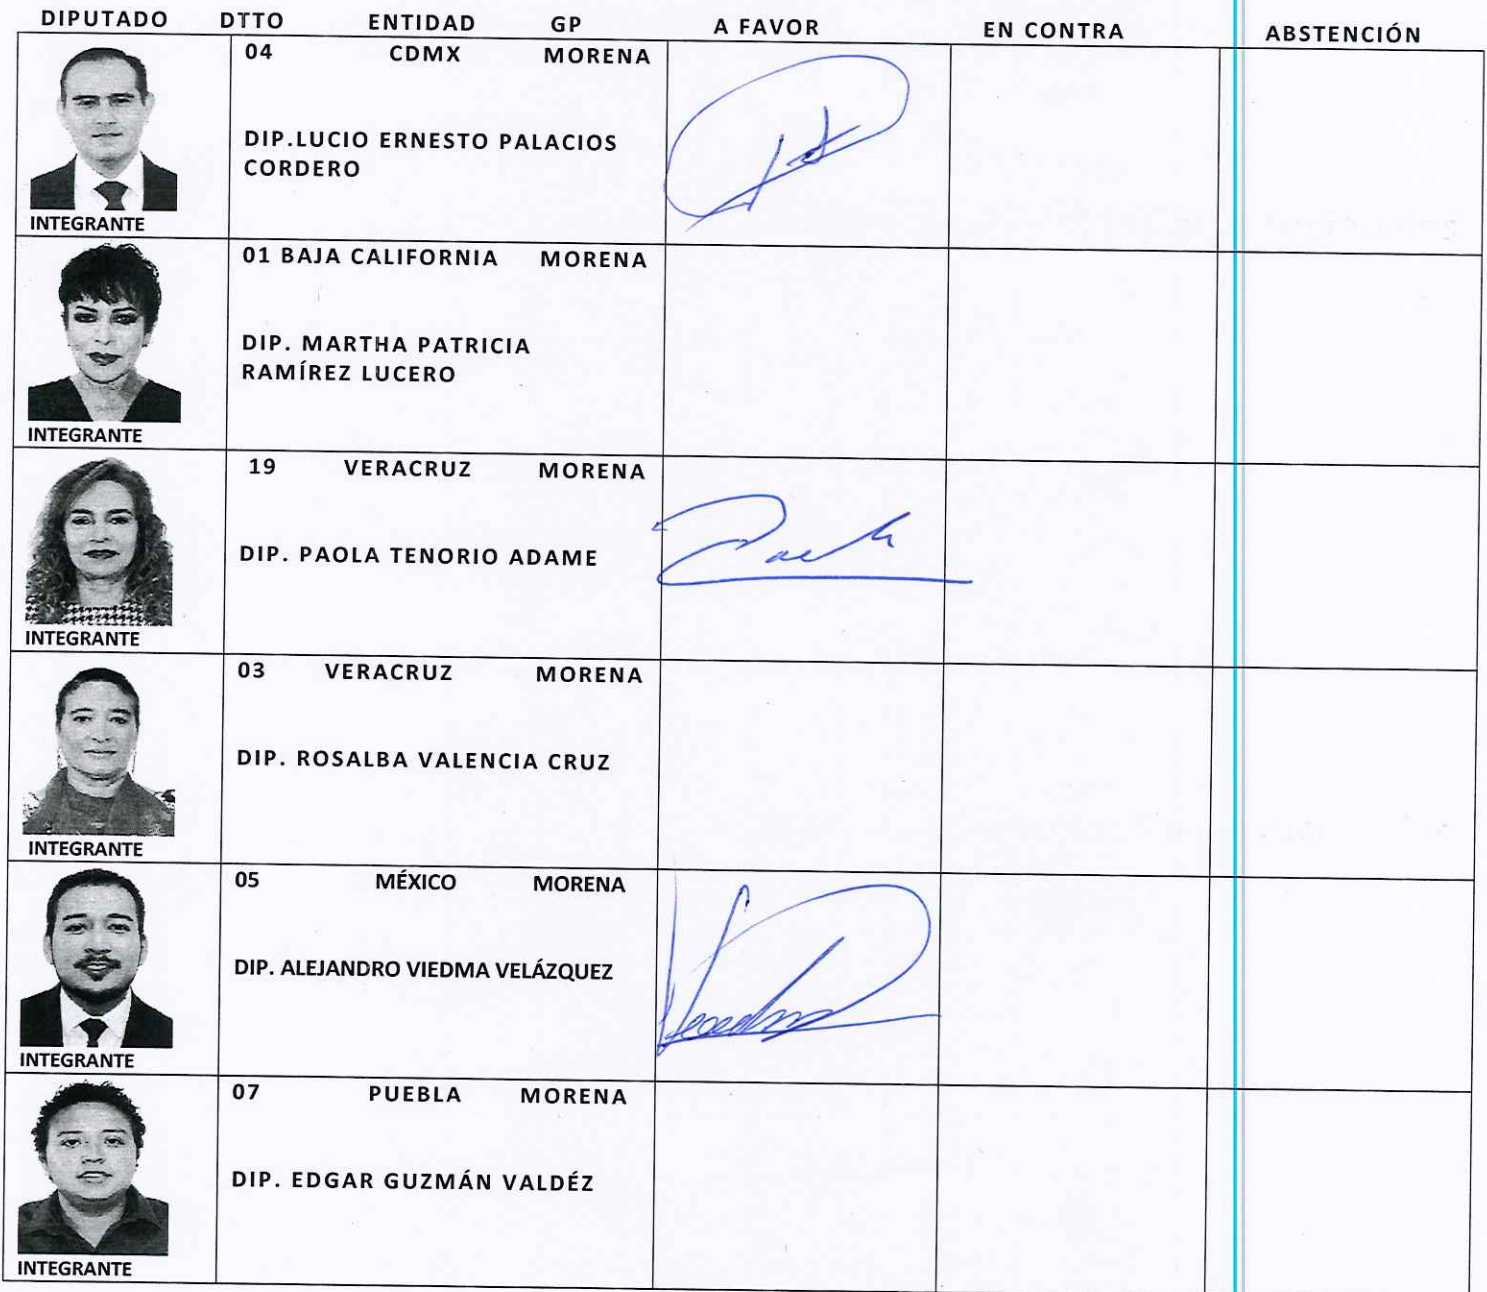 DIPUTADO DTTO ENTIDAD GP A FAVOR EN CONTRA ABSTENCIÓN
04 CDMX MORENA
DIP.LUCIO ERNESTO PALACIOS
CORDERO
INTEGRANTE
01 BAJA CALIFORNIA MORENA
DIP. MARTHA PATRICIA
RAMÍREZ LUCERO
INTEGRANTE
19 VERACRUZ MORENA
DIP. PAOLA TENORIO ADAME
Paola
INTEGRANTE
03 VERACRUZ MORENA
DIP. ROSALBA VALENCIA CRUZ
INTEGRANTE
05 MÉXICO MORENA
DIP. ALEJANDRO VIEDMA VELÁZQUEZ
INTEGRANTE
07 PUEBLA MORENA
DIP. EDGAR GUZMÁN VALDÉZ
INTEGRANTE